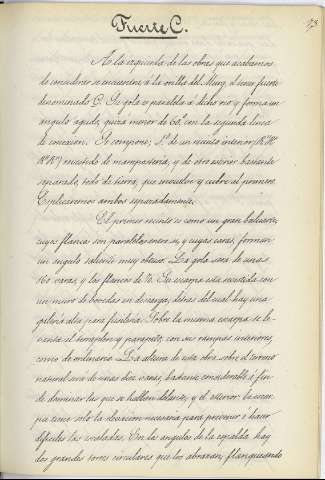 73
Fuerte C.
A la izquierda de las obras que acabamos
de considerar se encuentra á la orilla del Mar, el tercer fuerte
denominado C. Su gola es paralela á dicho rio y forma un
angulo agudo, quizá menor de 60° con la segunda linea
de conexion. Se compone; 1º de un recinto interior,
revestido de mamposteria, y de otro esterior bastante
separado, todo de tierra, que envuelve y cubre al primero.
Esplicaremos ambos separadamente.
El primer recinto es como un gran baluarte,
cuyos flancos son paralelos entre si, y cuyas caras, forman
un angulo saliente muy obtuso. La gola será de unas
160 varas, y los flancos de 70. Su escarpa está revestida con
un muro de bovedas en descarga, detras del cual hay una
galeria alta para fusileria. Sobre la misma escarpa se le-
vanta el terraplen y parapeto, con sus rampas interiores,
como de ordinario. La altura de esta obra sobre el terreno
natural será de unas diez varas, bastante considerable á fin
de dominar las que se hallan delante, y al esterior la escar-
pa tiene solo la elevacion necesaria para precaver ó hacer
dificiles las escaladas. En los angulos de la espalda hay
dos grandes torres circulares que los abrazan, flanqueando